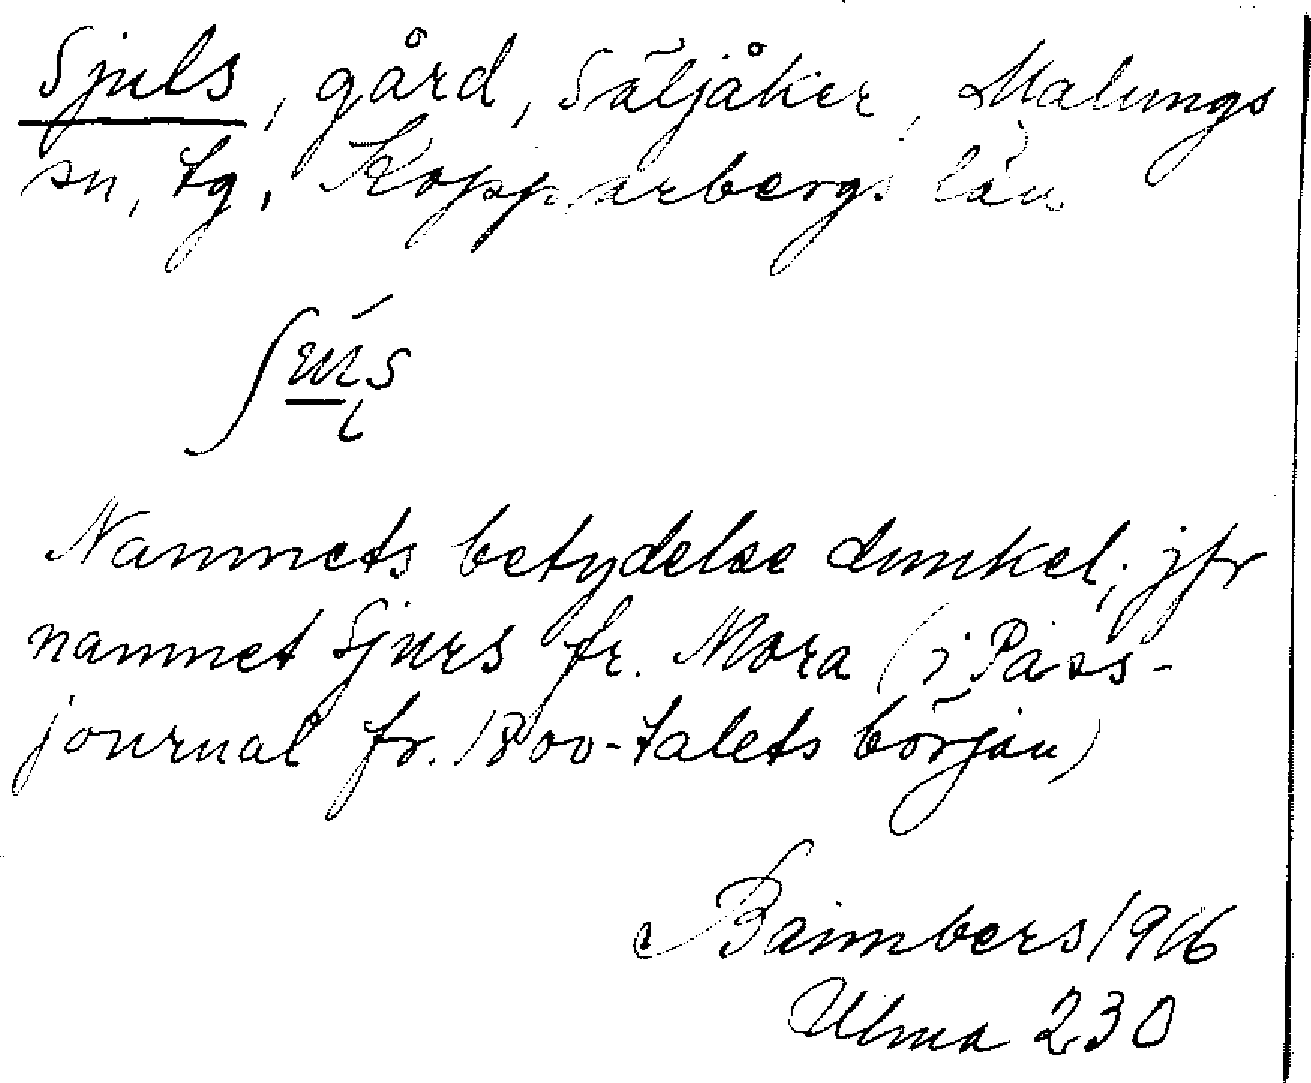 Sjuls, gård, Säljåker, Malungs
sn, tg, Kopparbergs län
Namnets betydelse dunkel; jfr
namnet Sjurs fr. Mora (i Pass-
journal fr. 1800-talets början)
1916
Ulma 230